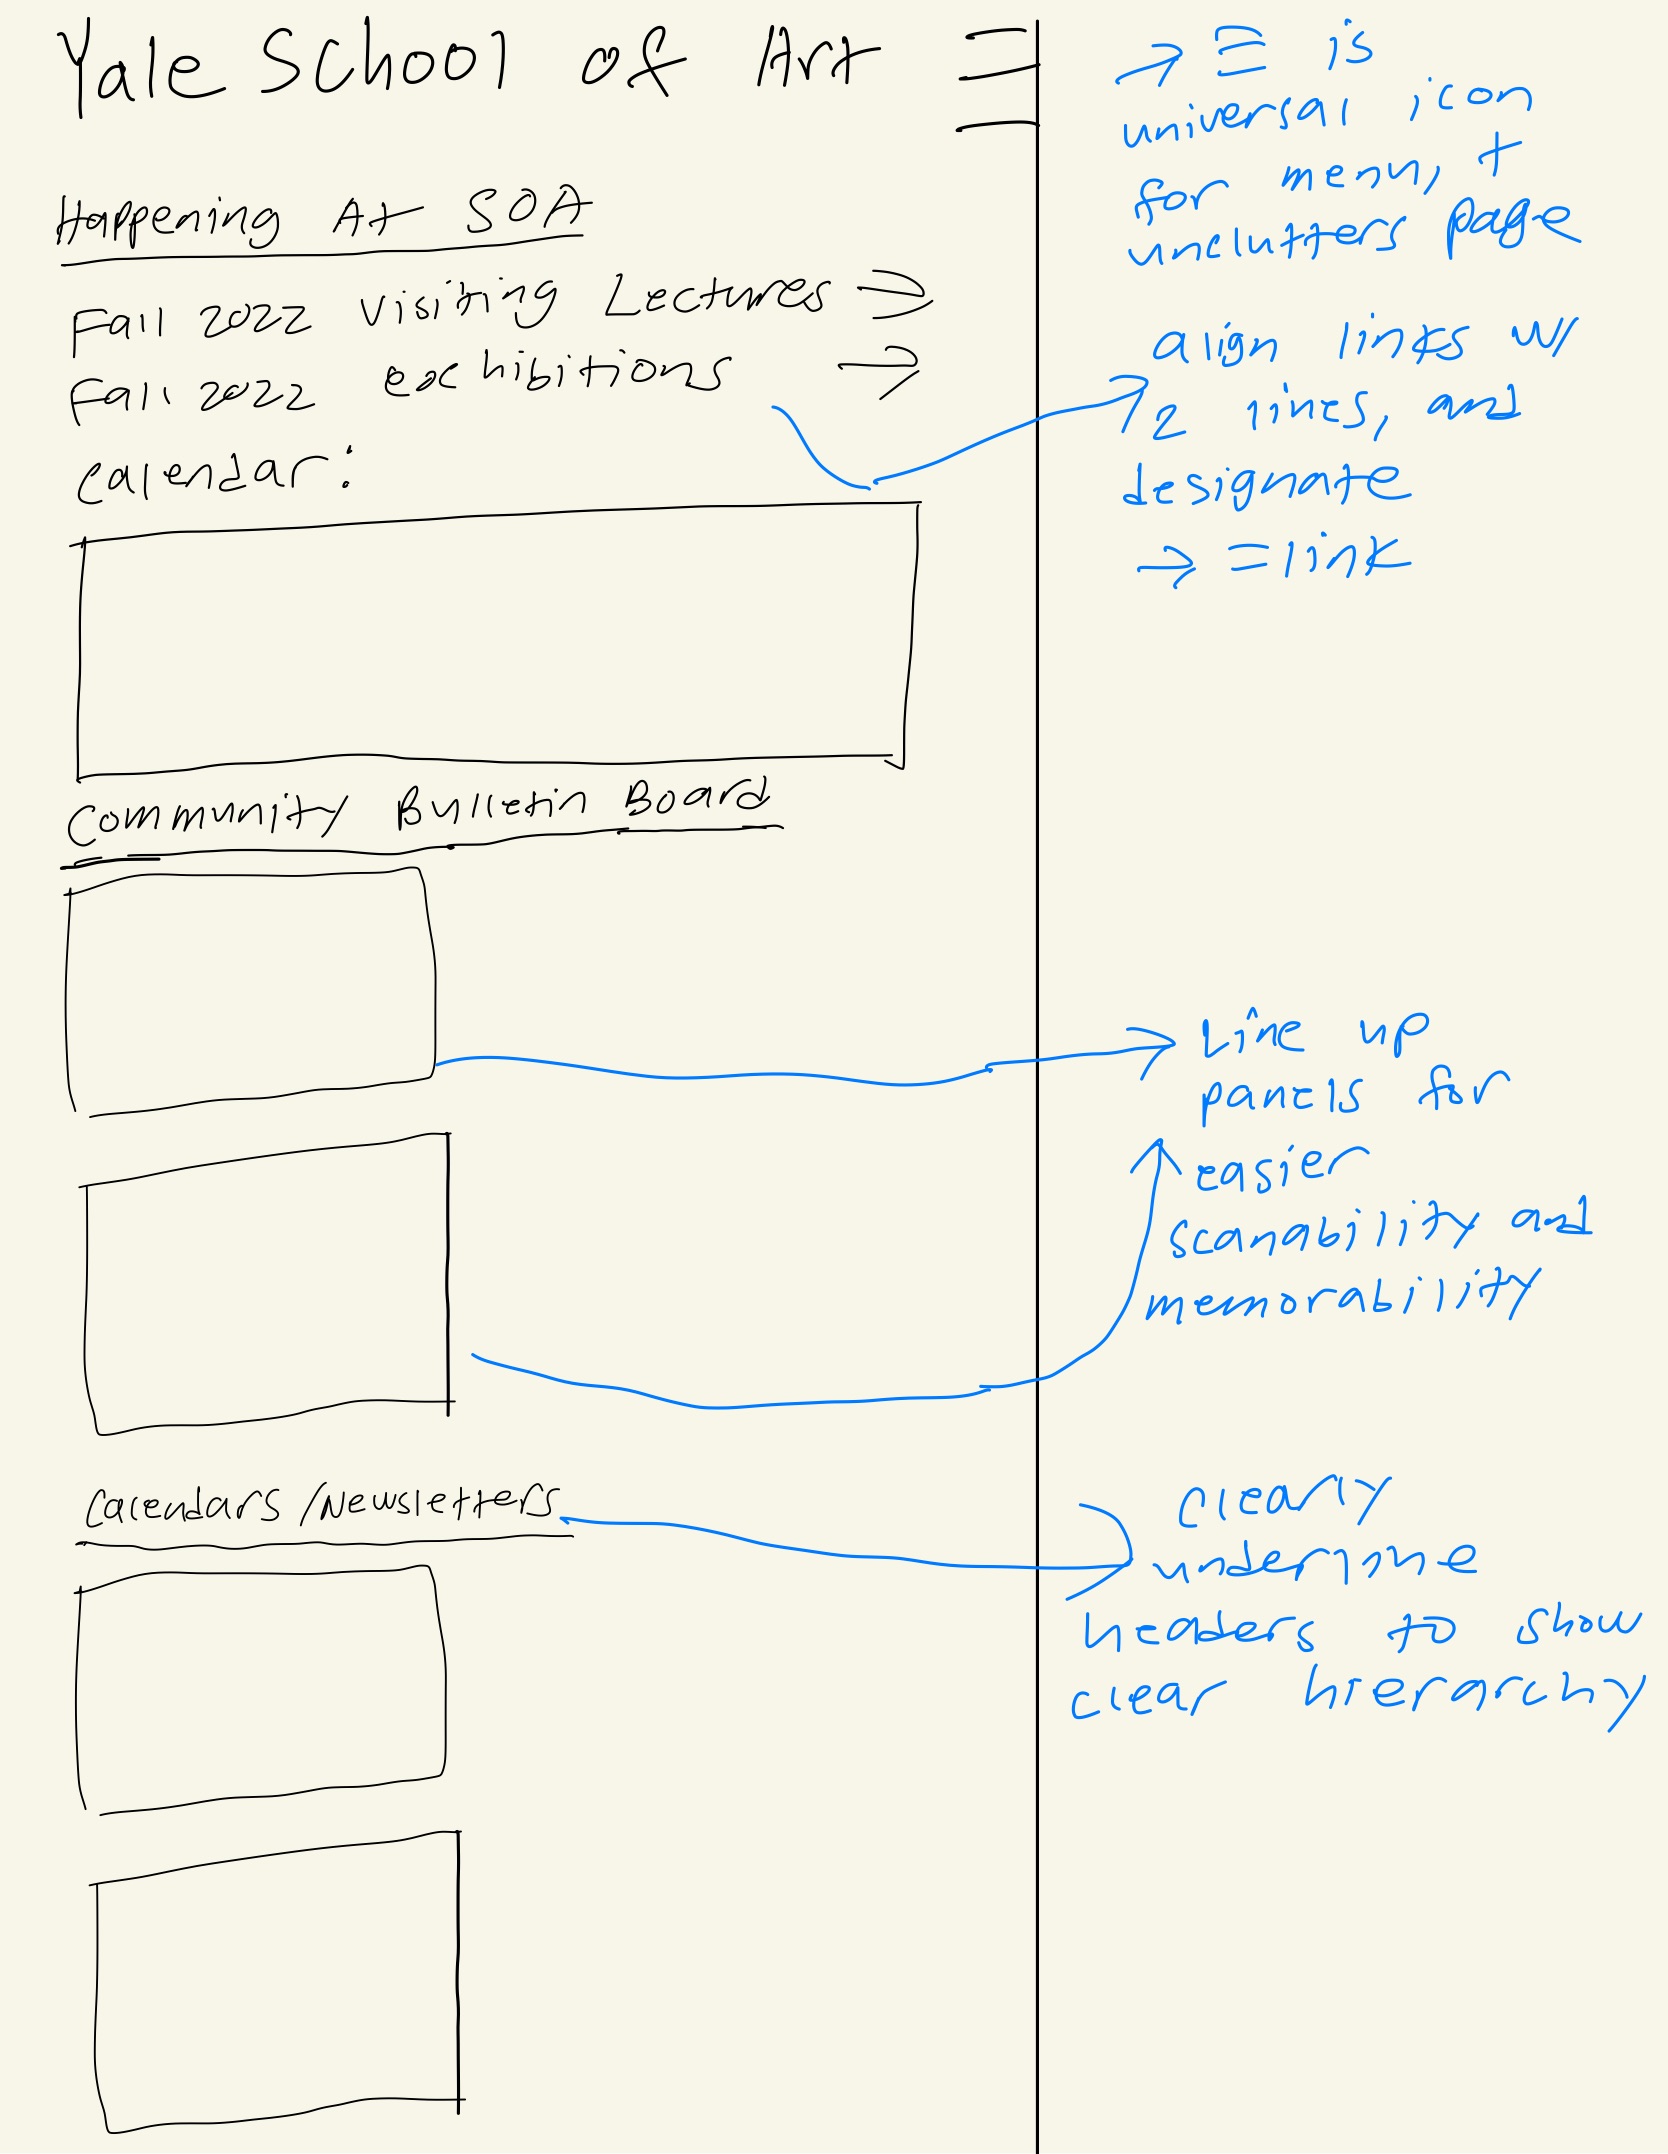 Yale School of Art
Happening At SOA
Fall 2022 visiting Lectures →
Fall 2022 exhibitions →
calendar:
Community Bulletin Board
Calendars/Newsletters
→ ≡ is
universal icon
for menu, +
unclutters page
align links w/
2 lines, and
designate
→ = link
Line up
panels for
easier
scanability and
memorability
clearly
underline
headers to show
clear hierarchy